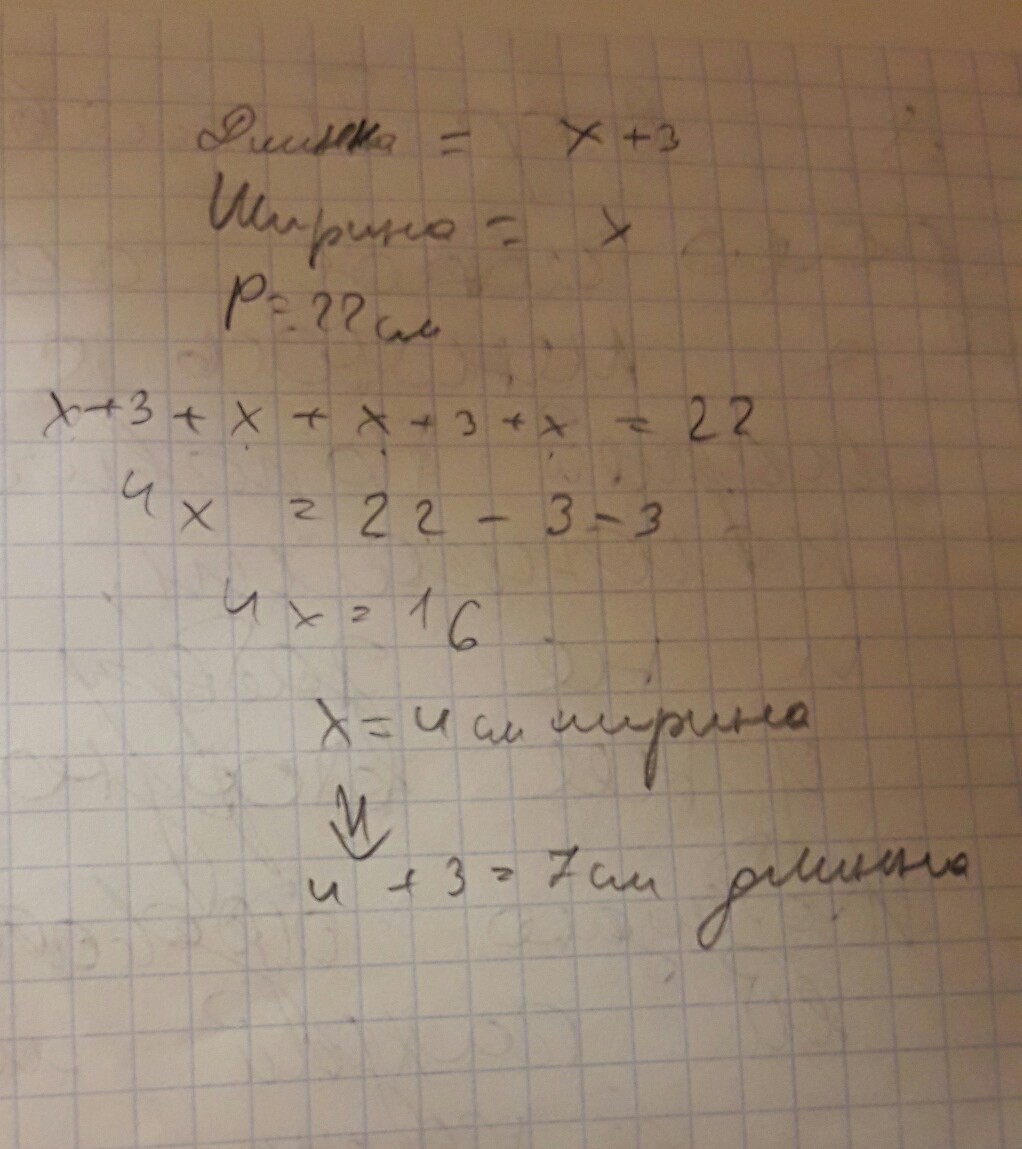 Длинна = x+3
Ширина = x
P=22см
x+3 + x + x + 3 + x = 22
4x = 22 - 3 - 3
4x = 16
x = 4см ширина
4 + 3 = 7см длинна